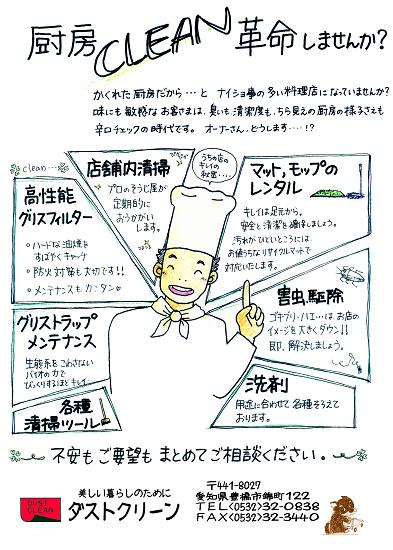 厨房CLEAN革命しませんか?
かくれた厨房だから…と ナイショ事の多い料理店になっていませんか?
味にも敏感なお客さまは、臭いも、清潔度も、ちら見えの厨房の様子さえも
辛口チェックの時代です。オーナーさん、どうします‥‥!?
clean…
店舗内清掃
プロのそうじ屋が
定期的に
おうかがい
します。
うちの店の
キレイの
秘密‥‥
マット,モップの
レンタル
キレイは足元から。
安全と清潔を確保しましょう。
汚れがひどいところには、
お値うちなリサイクルマットで
対応いたします。
高性能
グリスフィルター
ハードな油煙を
すばやくキャッチ
防火対策も大切です!!
メンテナンスもカンタン
グリストラップ
メンテナンス
生態系をこわさない
バイオの力で
びっくりするほどキレイ
各種
清掃ツール
害虫駆除
ゴキブリ・ハエ…は、お店の
イメージを大きくダウン!!
即、解決しましょう。
洗剤
用途に合わせて各種そろえて
おります。
不安もご要望もまとめてご相談ください。
DUST
CLEAN
美しい暮らしのために
ダストクリーン
〒441-8027
愛知県豊橋市錦町122
TEL(0532)32-0838
FAX(0532)32-3440